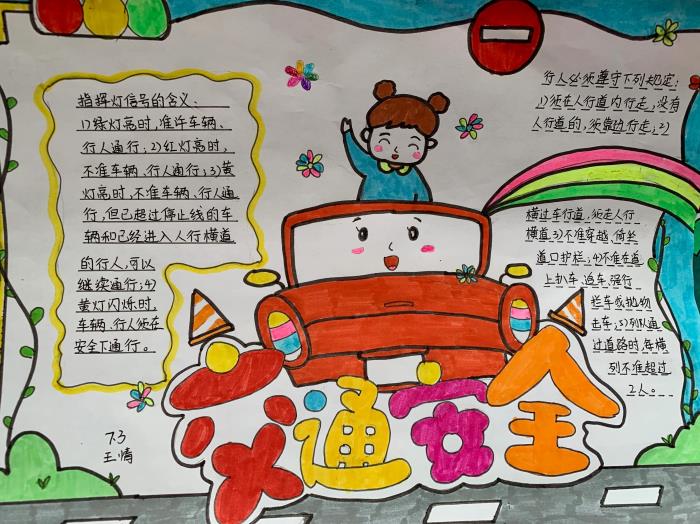 指挥灯信号的含义:
1)绿灯亮时,准许车辆、
行人通行;2)红灯亮时,
不准车辆、行人通行;3)黄
灯亮时,不准车辆、行人通
行,但已超过停止线的车
辆和已经进入人行横道
的行人,可以
继续通行;4)
黄灯闪烁时,
车辆、行人须在
安全下通行。
行人必须遵守下列规定:
1)须在人行道内行走,没有
人行道的,须靠边行走;2)
横过车行道,须走人行
横道;3)不准穿越、倚坐
道口护栏;4)不准在道
上扒车、追车、强行
拦车或抛物
击车;5)列队通
过道路时,每横
列不准超过
2人。
交通安全
7.3
王情